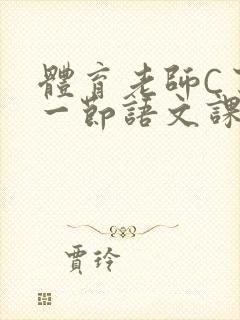 體育老師C
一節語文課
賈玲